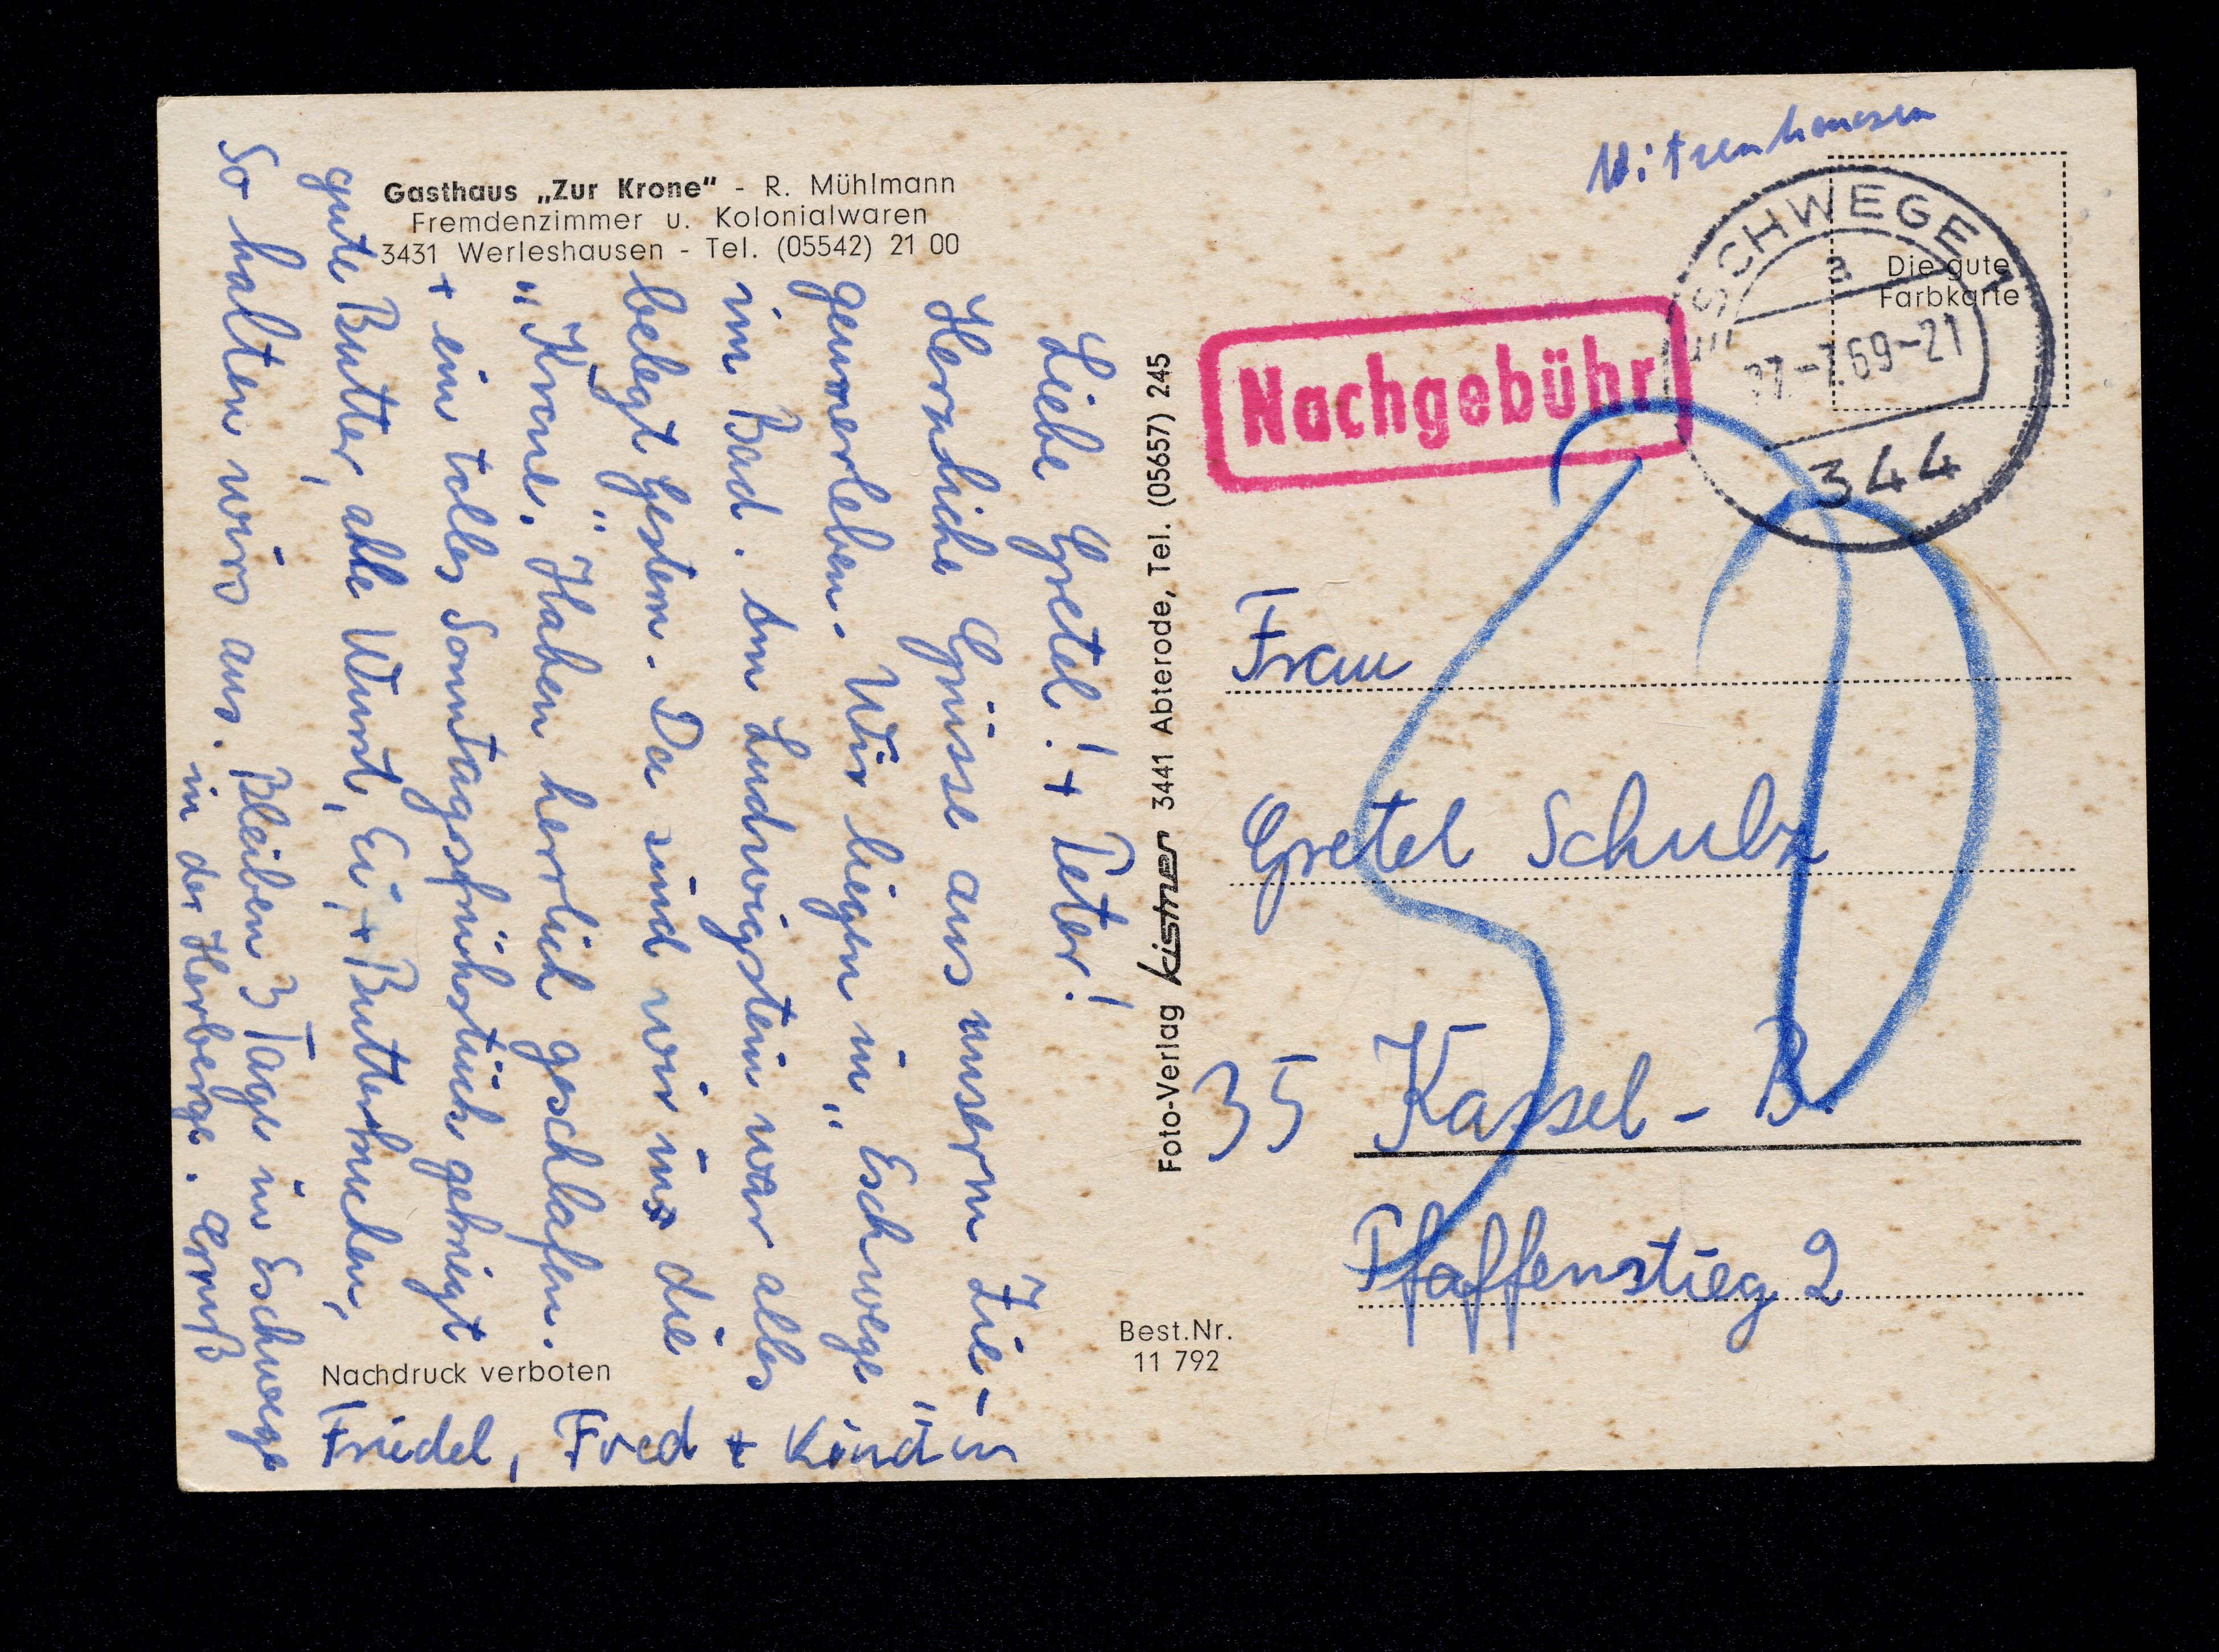 Gasthaus „Zur Krone" - R. Mühlmann
Fremdenzimmer u. Kolonialwaren
3431 Werleshausen - Tel. (05542) 21 00
Liebe Gretel! + Peter!
Herzliche Grüsse aus unserm Zie-
geunerleben. Wir liegen in „Eschwege"
im Bad. Am Ludwigstein war alles
belegt gestern. Da sind wir in die
"Krone". Haben herrlich geschlafen.
+ ein tolles Sonntagsfrühstück gekriegt
gute Butter, alle Wurst, Ei, + Butterkuchen,
So halten wirs aus. Bleiben 3 Tage in Eschwege
in der Herberge. Gruß
Friedel, Fred + Kinder
Nachdruck verboten
Foto-Verlag kistner 3441 Abterode, Tel. (05657) 245
Best.Nr.
11 792
Witzenhausen
Die gute
Farbkarte
ESCHWEGE 1
a
-7.69-21
344
Nachgebühr
Frau
Gretel Schulz
35 Kassel - B.
Pfaffenstieg 2